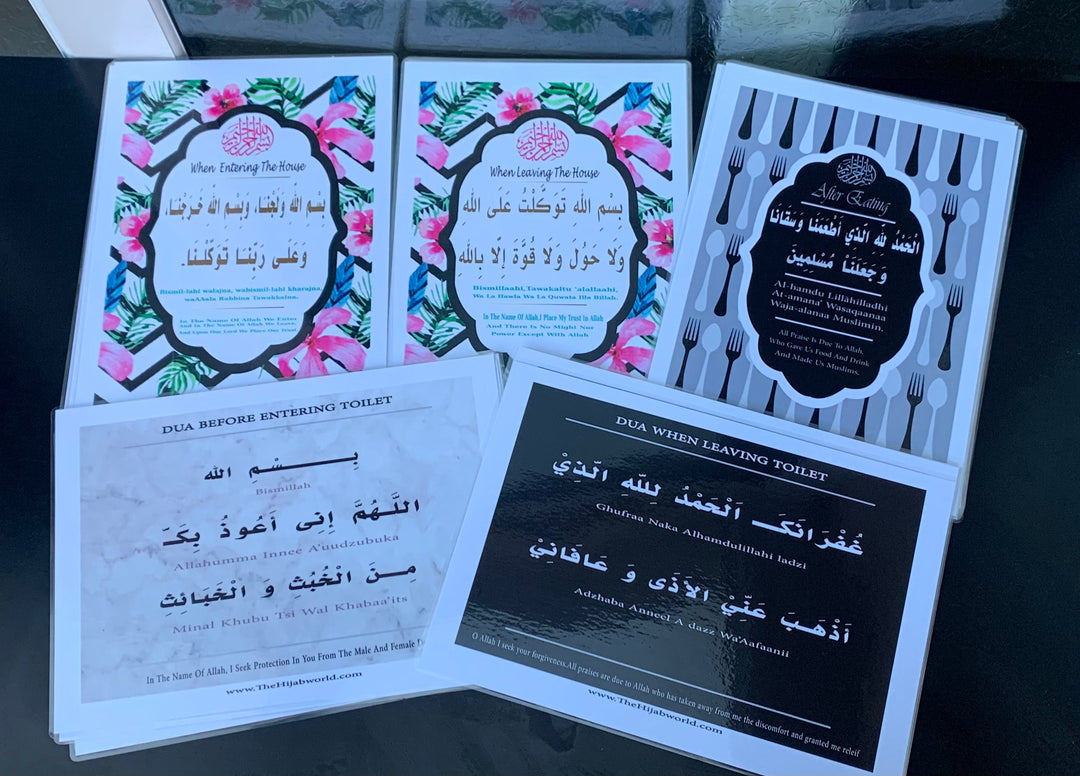 When Entering The House
بِسْمِ اللَّهِ وَلَجْنَـا، وَبِسْمِ اللَّهِ خَـرَجْنَـا،
وَعَلَـى رَبِّنَـا تَوَكَّلْنَـا.
Bismil-lahi walajna, wabismil-lahi kharajna,
waAAala Rabbina Tawakkalna.
In The Name Of Allah We Enter
And In The Name Of Allah We Leave,
And Upon Our Lord We Place Our Trust
When Leaving The House
بِسْمِ اللَّهِ تَوَكَّلْتُ عَلَى اللَّهِ
وَلَا حَوْلَ وَلَا قُوَّةَ إِلَّا بِاللَّهِ
Bismillaahi, Tawakaltu 'alallaahi,
Wa La Hawla Wa La Quwata Illa Billah.
In The Name Of Allah,I Place My Trust In Allah
And There Is No Might Nur
Power Except With Allah
After Eating
الْحَمْدُ لِلَّهِ الَّذِي أَطْعَمَنَا وَسَقَانَا
وَجَعَلَنَا مُسْلِمِينَ
Al-hamdu Lillâhillathi
At-amana' Wasaqaanaa
Waja-alanaa Muslimin.
All Praise Is Due To Allah,
Who Gave Us Food And Drink
And Made Us Muslims.
DUA BEFORE ENTERING TOILET
بِـــــسْمِ اللَّه
Bismillah
اللَّـهُمَّ إِنِى أَعُوذُ بِكَـ
Allahumma Innee A'uudzubuka
مِـنَ الْخُبُثِ وَ الْخَبَائِثِ
Minal Khubu Tsi Wal Khabaa'its
In The Name Of Allah, I Seek Protection In You From The Male And Female
www.TheHijabworld.com
DUA WHEN LEAVING TOILET
غُفْرَانَكَـ اَلْحَمْدُ لِلَّهِ الَّذِيْ
Ghufraa Naka Alhamdulillahi ladzi
اَذْهَبَ عَنِّيْ الأَذَى وَ عَافَانِيْ
Adzhaba Anneel A dazz Wa'Aafaanii
O Allah I seek your forgiveness.All praises are due to Allah who has taken away from me the discomfort and granted me releif
www.TheHijabworld.com